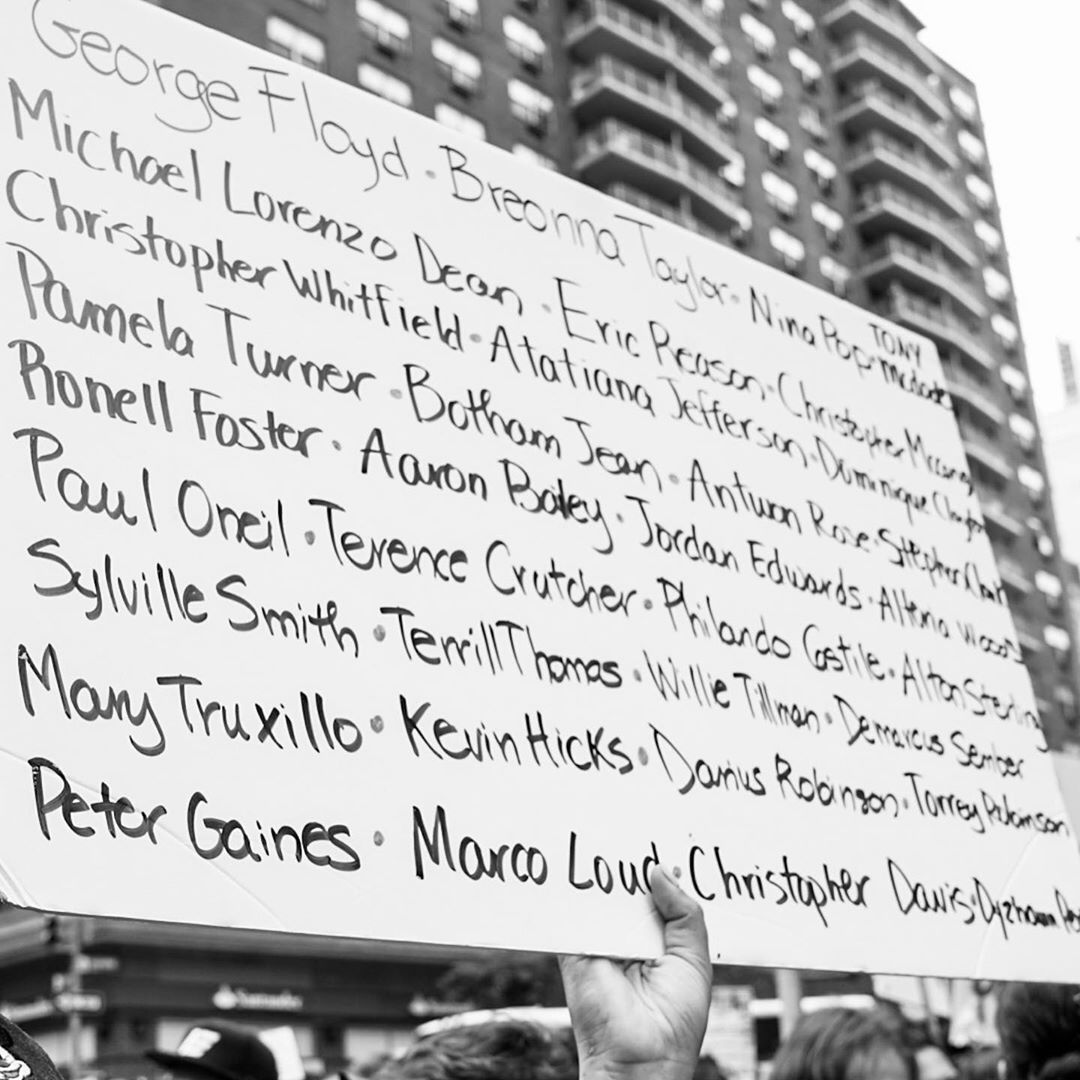 George Floyd • Breonna Taylor • Nina Pop • TONY McDade
Michael Lorenzo Dean • Eric Reason • Christopher
Christopher Whitfield • Atatiana Jefferson • Dominique Clayton
Pamela Turner • Botham Jean • Antwon Rose • Stephon Clark
Ronell Foster • Aaron Bailey • Jordan Edwards • Alteria Woods
Paul Oneil • Terence Crutcher • Philando Castile • Alton Sterling
Sylville Smith • Terrill Thomas • Willie Tillman • Demarcus Semer
Mary Truxillo • Kevin Hicks • Darius Robinson • Torrey Robinson
Peter Gaines • Marco Loud • Christopher Davis • Dyzhawn
Santander